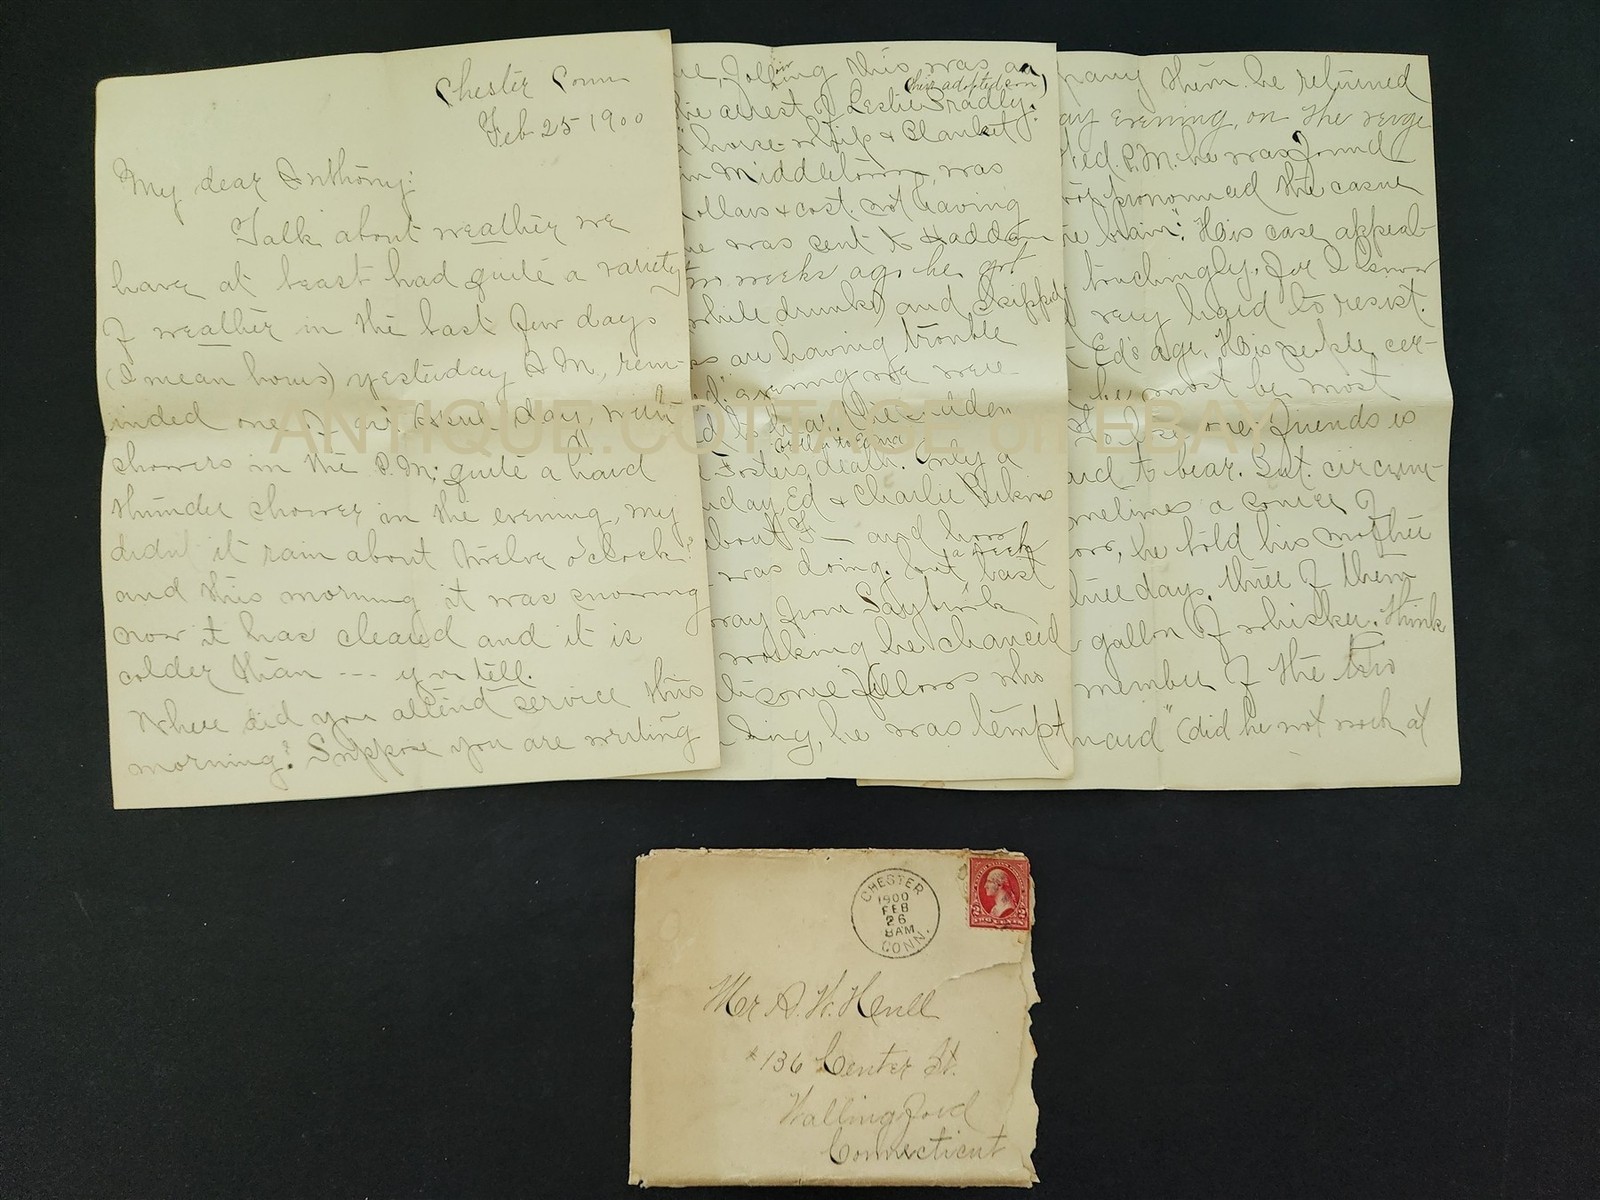 Chester Conn
Feb 25 1900
My dear Anthony:
Talk about weather we
have at least had quite a variety
of weather in the last few days
(I mean hours) yesterday A.M., rem-
inded one of an day, with
showers in the P.M; quite a hard
thunder shower in the evening, my
didnt it rain about twelve o'clock?
and this morning it was snowing
now it has cleared and it is
colder than --- you tell.
Where did you attend service this
morning? Suppose you are writing
this was an
the arrest of Leslie Bradly. (his adopted son)
horse-whip & blanket
in Middletown, was
ollars & cost. not having
was sent to Haddam
weeks ago he got
while drunk) and skipped
are having trouble
evening we were
sudden
Foster's death. Only a
day, Ed & Charlie Perkins
about F— and how
was doing. but last
a week
way from Saybrook
working he chanced
some fellows who
ing, he was tempt
pany them he returned
ay evening, on the verge
Wed. P.M. he was found
pronounced the cause
brain". His case appeal-
touchingly, for I know
very hard to resist.
Ed's age. His people, cer-
he, must be most
To lose one's friends is
ard to bear. But circum-
metimes a source of
he told his mother
three days, three of them
gallon of whiskey. Think
member of the two
maid" (did he not work at
ANTIQUE.COTTAGE on EBAY
CHESTER
1900
FEB
26
8AM
CONN.
2 2
TWO CENTS
Mr A. W. Hull
#136 Center St.
Wallingford
Connecticut